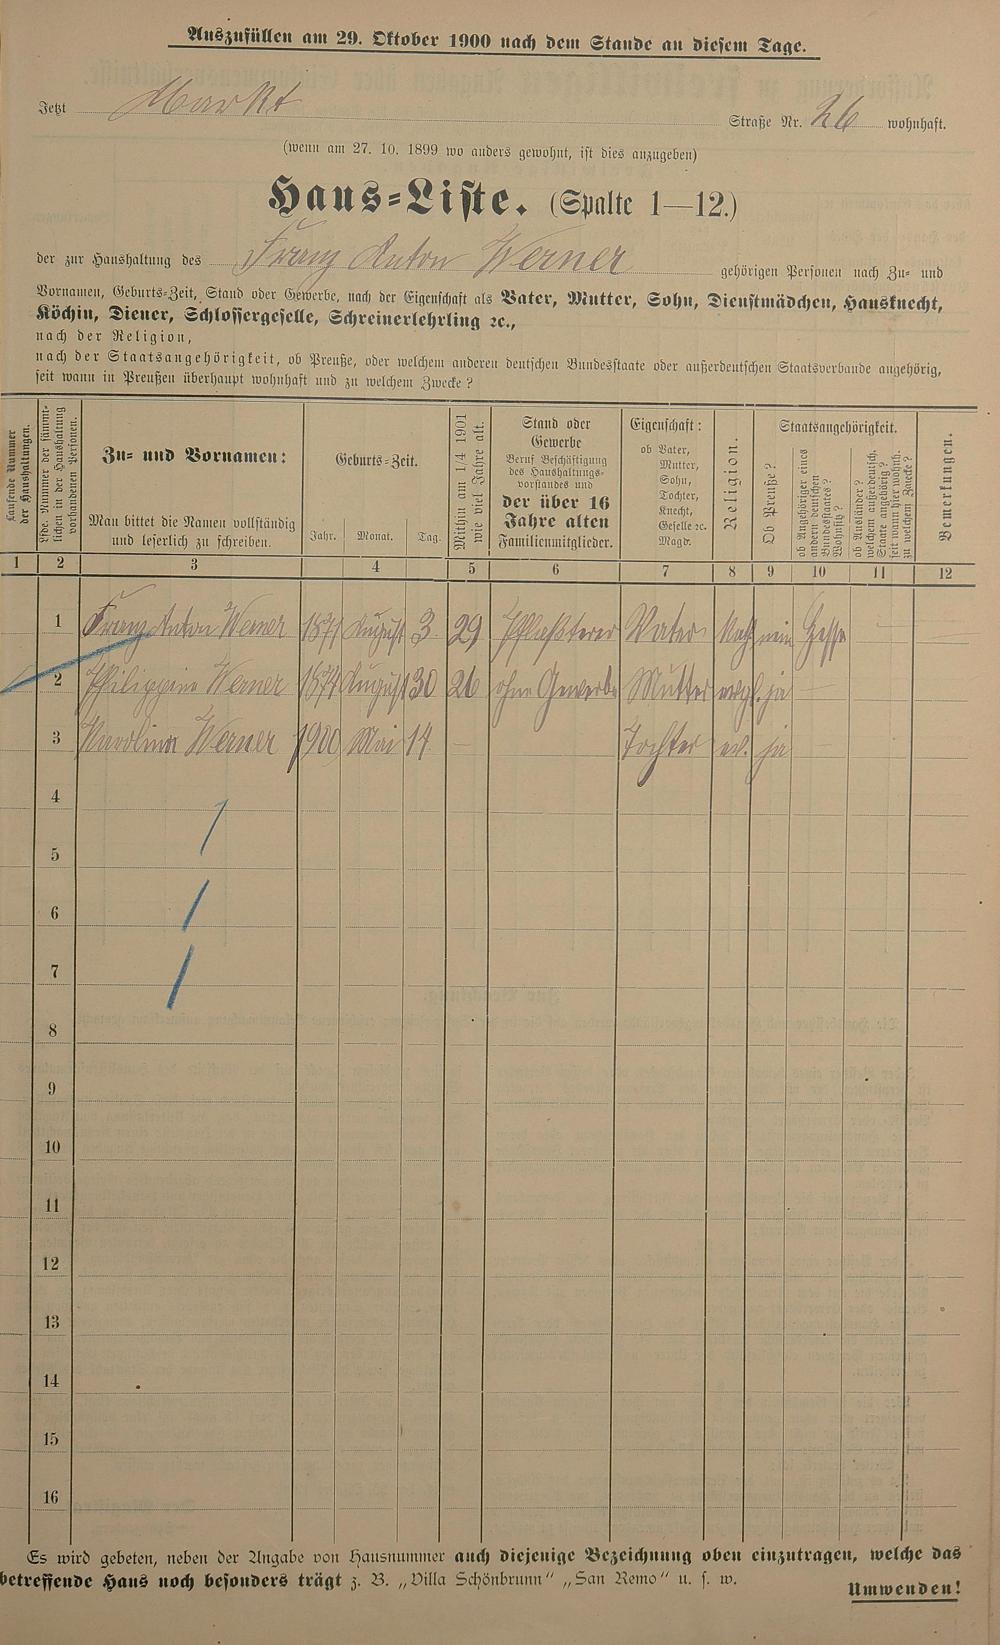 Auszufüllen am 29. Oktober 1900 nach dem Stande an diesem Tage.
Jetzt Markt Straße Nr. 26 wohnhaft.
(wenn am 27. 10. 1899 wo anders gewohnt, ist dies anzugeben)
Haus-Liste. (Spalte 1—12.)
der zur Haushaltung des Franz Anton Werner gehörigen Personen nach Zu- und
Vornamen, Geburts-Zeit, Stand oder Gewerbe, nach der Eigenschaft als Vater, Mutter, Sohn, Dienstmädchen, Hausknecht,
Köchin, Diener, Schlossergeselle, Schreinerlehrling ꝛc.,
nach der Religion,
nach der Staatsangehörigkeit, ob Preuße, oder welchem anderen deutschen Bundesstaate oder außerdeutschen Staatsverbande angehörig,
seit wann in Preußen überhaupt wohnhaft und zu welchem Zwecke?
Laufende Nummer
der Haushaltungen.
Lfde. Nummer der sämmt-
lichen in der Haushaltung
vorhandenen Personen.
Zu- und Vornamen:
Man bittet die Namen vollständig
und leserlich zu schreiben.
Geburts-Zeit.
Jahr. Monat. Tag.
Mithin am 1/4 1901
wie viel Jahre alt.
Stand oder
Gewerbe
Beruf Beschäftigung
des Haushaltungs-
vorstandes und
der über 16
Jahre alten
Familienmitglieder.
Eigenschaft:
ob Vater,
Mutter,
Sohn,
Tochter,
Knecht,
Geselle ꝛc.
Magd.
Religion.
Staatsangehörigkeit.
Ob Preuße?
ob Angehöriger eines
andern deutschen
Bundesstaates?
Wohnsitz?
ob Ausländer?
welchem außerdeutsch.
Staate angehörig?
seit wann hier wohnh.
zu welchem Zwecke?
Bemerkungen.
1 2 3 4 5 6 7 8 9 10 11 12
1 Franz Anton Werner 1871 August 3. 29 Pflasterer Vater Kath. nein Hesse —
2 Philippine Werner 1874 August 30 26 ohne Gewerbe Mutter evgl. ja —
3 Karolina Werner 1900 Mai 14 — Tochter ev. ja —
4
5
6
7
8
9
10
11
12
13
14
15
16
Es wird gebeten, neben der Angabe von Hausnummer auch diejenige Bezeichnung oben einzutragen, welche das
betreffende Haus noch besonders trägt z. B. „Villa Schönbrunn“ „San Remo“ u. s. w.
Umwenden!